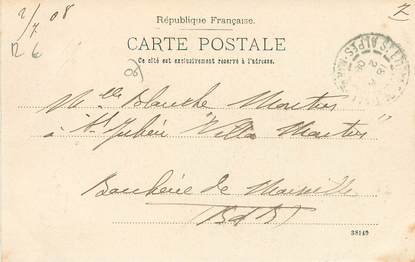 2/7 08
R 6
République Française.
CARTE POSTALE
Ce côté est exclusivement réservé à l'adresse.
06
Mlle Blanche
à St Julien "Villa
de Marseille
B d R
38149